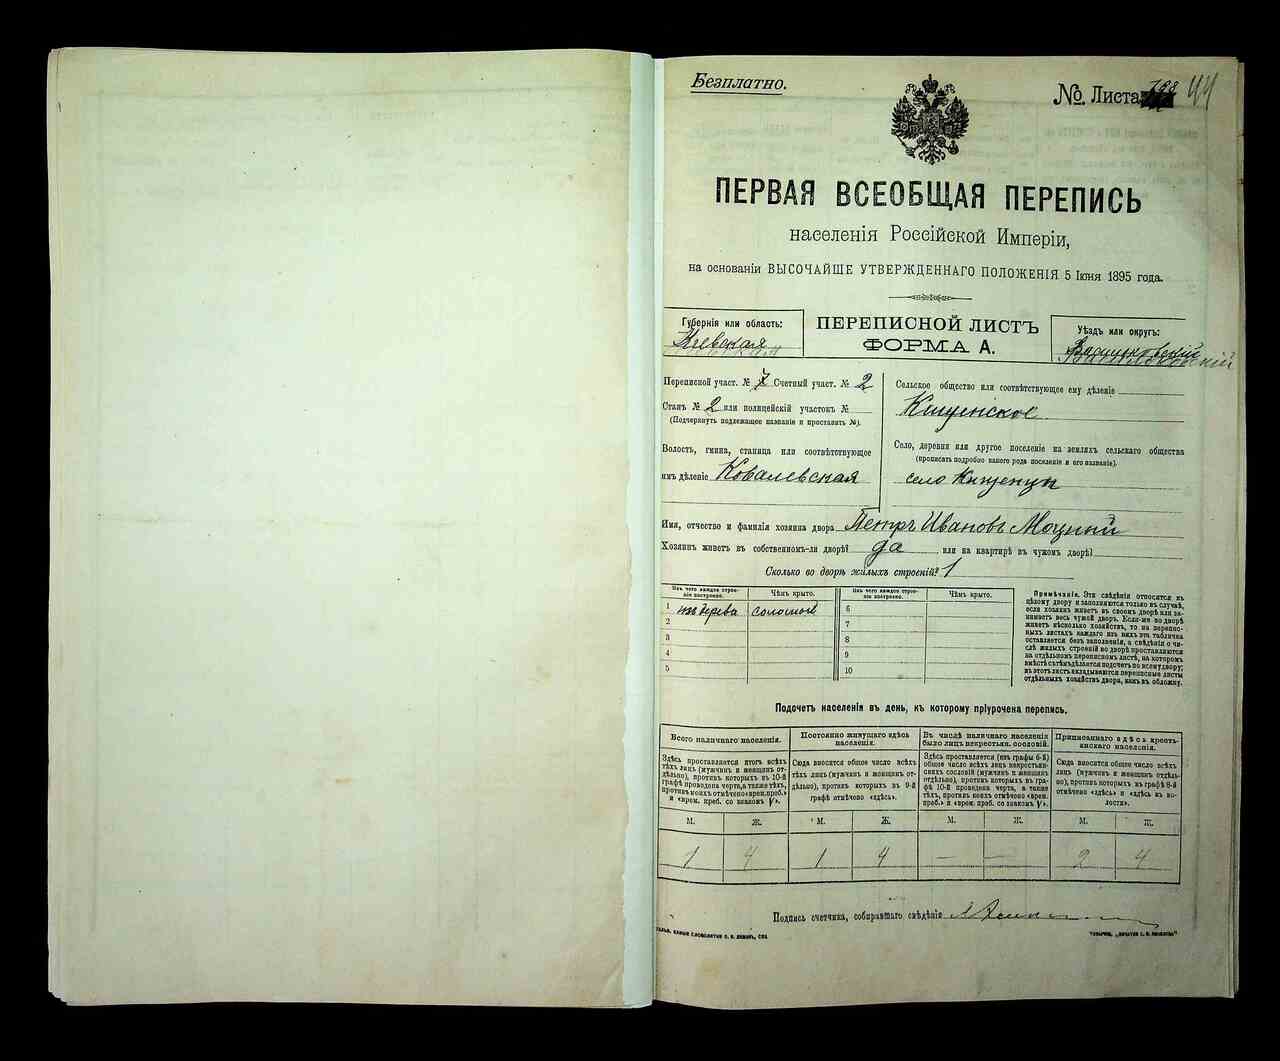 Безплатно.
№ Листа 44
ПЕРВАЯ ВСЕОБЩАЯ ПЕРЕПИСЬ
населенія Россійской Имперіи,
на основаніи ВЫСОЧАЙШЕ УТВЕРЖДЕННАГО ПОЛОЖЕНІЯ 5 Іюня 1895 года.
Губернія или область:
Кіевская
ПЕРЕПИСНОЙ ЛИСТЪ
ФОРМА А.
Уѣздъ или округъ:
Васильковскій
Переписной участ. № 7 Счетный участ. № 2
Станъ № 2 или полицейскій участокъ №
(Подчеркнуть подлежащее названіе и проставить №).
Волость, гмина, станица или соотвѣтствующее
имъ дѣленіе Ковалевская
Сельское общество или соотвѣтствующее ему дѣленіе
Кищенское
Село, деревня или другое поселеніе на земляхъ сельскаго общества
(прописать подробно какого рода поселеніе и его названіе).
село Кищенцы
Имя, отчество и фамилія хозяина двора Петръ Ивановъ Моцний
Хозяинъ живетъ въ собственномъ-ли дворѣ? да или на квартирѣ въ чужомъ дворѣ?
Сколько во дворѣ жилыхъ строеній? 1
Изъ чего каждое строеніе построено.
Чѣмъ крыто.
Изъ чего каждое строеніе построено.
Чѣмъ крыто.
1 изъ дерева соломою 6
2 7
3 8
4 9
5 10
Примѣчаніе. Эти свѣдѣнія относятся къ
цѣлому двору и заполняются только въ случаѣ,
если хозяинъ живетъ въ своемъ дворѣ или за-
нимаетъ весь чужой дворъ. Если-же во дворѣ
живетъ нѣсколько хозяйствъ, то на перепис-
ныхъ листахъ каждаго изъ нихъ эта табличка
оставляется безъ заполненія, а свѣдѣнія о чи-
слѣ жилыхъ строеній во дворѣ проставляются
на отдѣльномъ переписномъ листѣ, на которомъ
вмѣстѣ съ тѣмъ дѣлается подсчетъ по всему двору;
въ этотъ листъ вкладываются переписные листы
отдѣльныхъ хозяйствъ двора, какъ въ обложку.
Подсчетъ населенія въ день, къ которому пріурочена перепись.
Всего наличнаго населенія.
Постоянно живущаго здѣсь
населенія.
Въ числѣ наличнаго населенія
было лицъ некрестьян. сословій.
Приписаннаго здѣсь кресть-
янскаго населенія.
Здѣсь проставляется итогъ всѣхъ
тѣхъ лицъ (мужчинъ и женщинъ от-
дѣльно), противъ которыхъ въ 10-й
графѣ проведена черта, а также тѣхъ,
противъ коихъ отмѣчено «врем. преб.»
и «врем. преб. со знакомъ V».
Сюда вносится общее число всѣхъ
тѣхъ лицъ (мужчинъ и женщинъ от-
дѣльно), противъ которыхъ въ 9-й
графѣ отмѣчено «здѣсь».
Здѣсь проставляется (изъ графы 6-й)
общее число всѣхъ лицъ некрестьян-
скихъ сословій (мужчинъ и женщинъ
отдѣльно), противъ которыхъ въ гра-
фѣ 10-й проведена черта, а также
тѣхъ, противъ коихъ отмѣчено «врем.
преб.» и «врем. преб. со знакомъ V».
Сюда вносится общее число всѣхъ
лицъ (мужчинъ и женщинъ отдѣль-
но), противъ которыхъ въ графѣ 8-й
отмѣчено «здѣсь» и «здѣсь въ во-
лости».
М. Ж. М. Ж. М. Ж. М. Ж.
1 4 1 4 — — 2 4
Подпись счетчика, собиравшаго свѣдѣнія